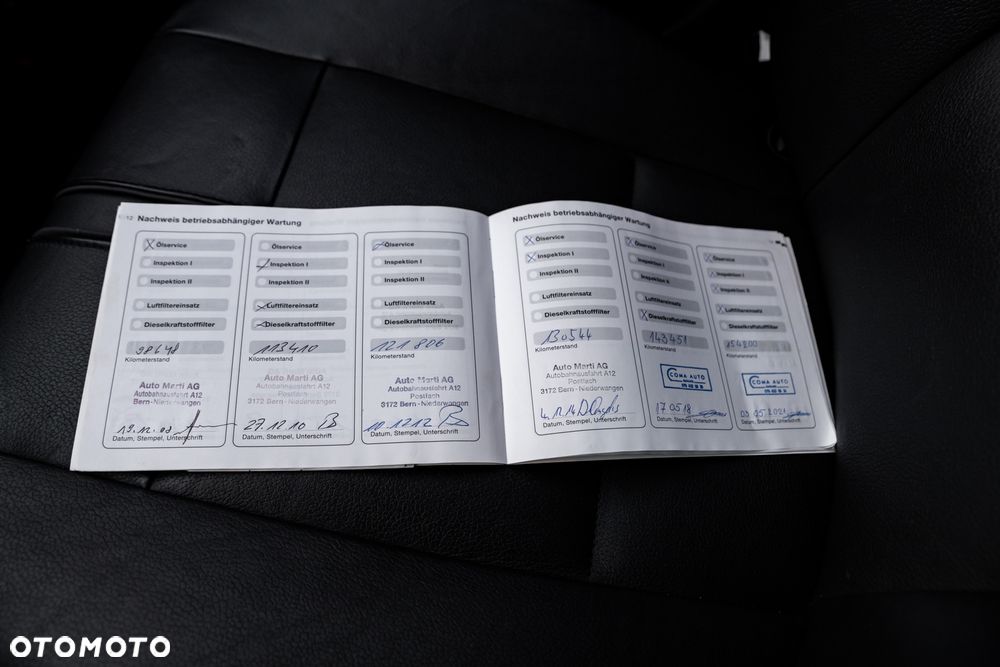 12 Nachweis betriebsabhängiger Wartung
Ölservice
Inspektion I
Inspektion II
Luftfiltereinsatz
Dieselkraftstofffilter
98648
Kilometerstand
Auto Marti AG
Autobahnausfahrt A12
Bern - Niederwangen
19.12.08
Datum, Stempel, Unterschrift
Ölservice
Inspektion I
Inspektion II
Luftfiltereinsatz
Dieselkraftstofffilter
113410
Kilometerstand
Auto Marti AG
Autobahnausfahrt A12
Postfach
3172 Bern - Niederwangen
27.12.10
Datum, Stempel, Unterschrift
Ölservice
Inspektion I
Inspektion II
Luftfiltereinsatz
Dieselkraftstofffilter
121806
Kilometerstand
Auto Marti AG
Autobahnausfahrt A12
Postfach
3172 Bern - Niederwangen
10.12.12
Datum, Stempel, Unterschrift
Nachweis betriebsabhängiger Wartung
Ölservice
Inspektion I
Inspektion II
Luftfiltereinsatz
Dieselkraftstofffilter
130544
Kilometerstand
Auto Marti AG
Autobahnausfahrt A12
Postfach
3172 Bern - Niederwangen
4.12.14
Datum, Stempel, Unterschrift
Ölservice
Inspektion I
Inspektion II
Luftfiltereinsatz
Dieselkraftstofffilter
143451
Kilometerstand
COMA AUTO
17.05.18
Datum, Stempel, Unterschrift
Ölservice
Inspektion I
Inspektion II
Luftfiltereinsatz
Dieselkraftstofffilter
154200
Kilometerstand
COMA AUTO
03.05.2021
Datum, Stempel, Unterschrift
OTOMOTO